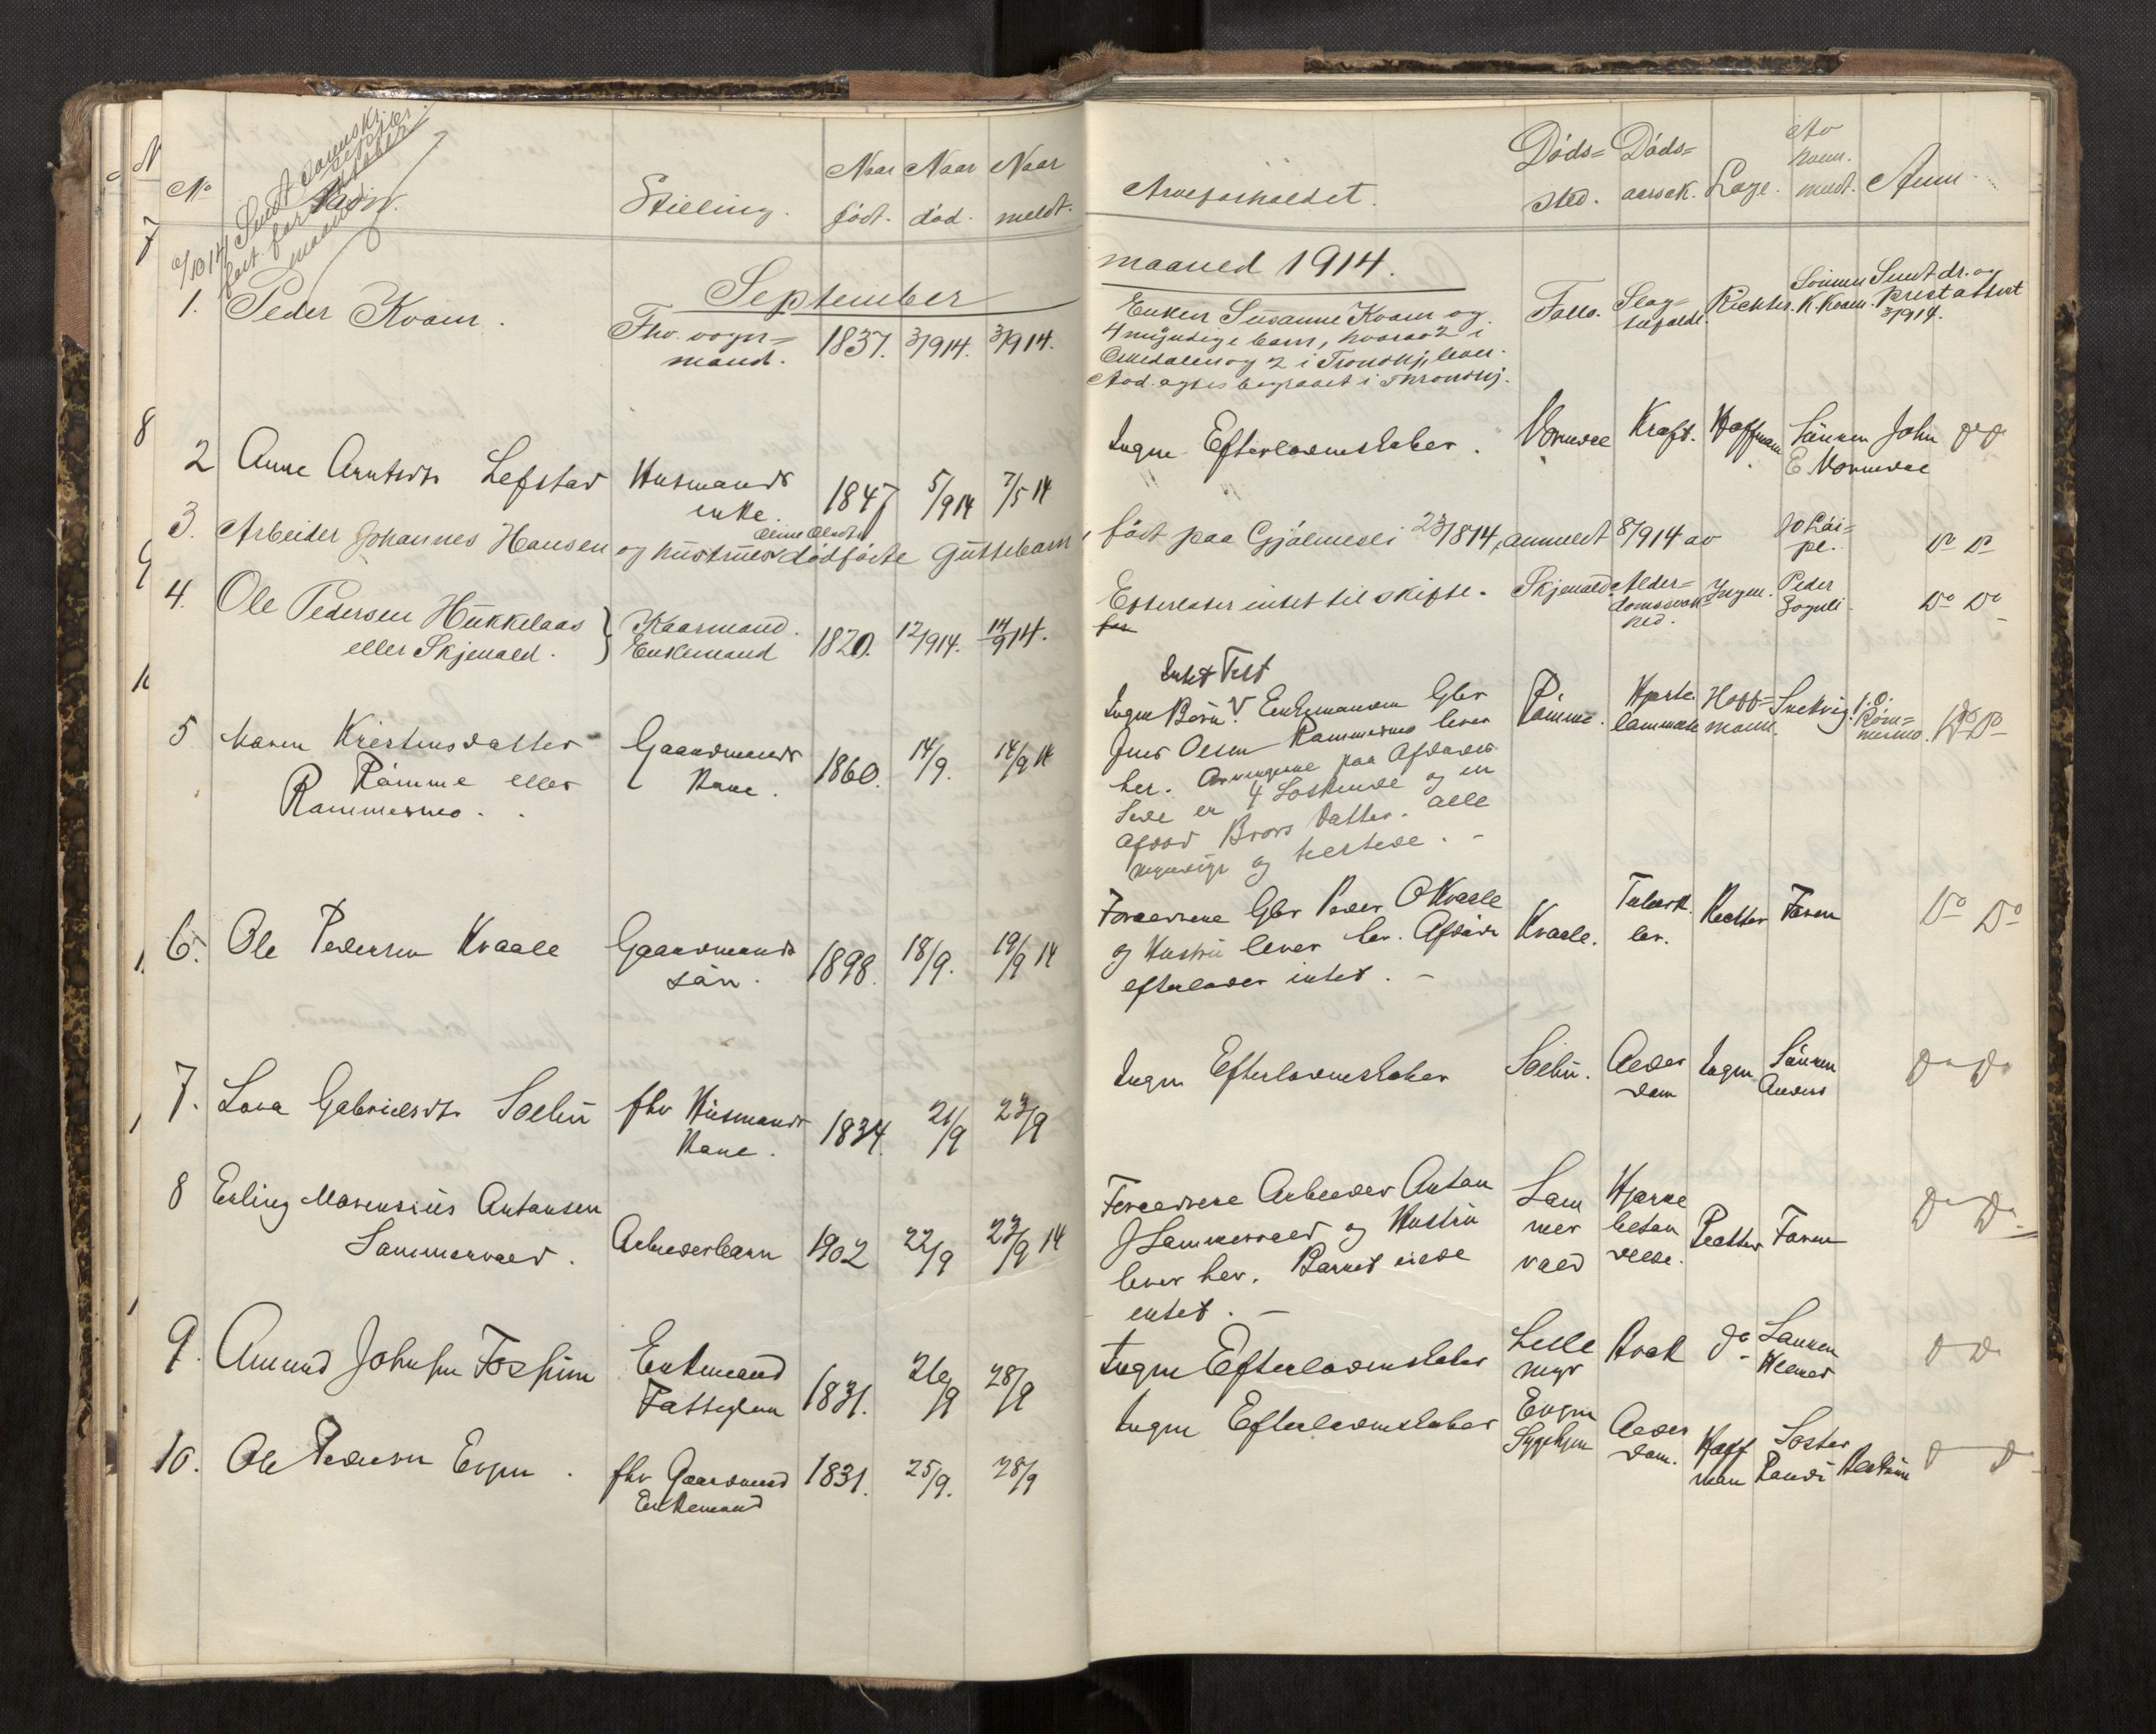 No
Stilling.
Naar født.
Naar død.
Naar meldt.
Arveforholdet.
Døds= sted.
Døds= aarsak.
Læge.
Av hvem meldt.
Anm.
September
maaned 1914.
1. Peder Kvam.
Fhv. vogn=
mand.
1837. 3/9 14. 3/9 14.
Enken Susanne Kvam og
4 myndige barn, hvorav 2 i
Orkedalen og 2 i Trondhj. lever.
Avd. agtes begravet i Throndhj.
Slag=
tilfælde.
Richter.
Sønnen
K. Kvam.
Sendt dr. og
prestattest
3/9 14.
2 Anne Arntsdtr Lefstad
Husmands
enke.
1847 5/9 14
Ingen Efterladenskaber.
Kræft.
Hoffmann
Sønnen John
Do Do
3. Arbeider Johannes Hansen og hustrues dødfødte Guttebarn,
født paa Gjølmesli 23/8 14, anmeldt 8/9 14 av
Do Do
4. Ole Pedersen Hukkelaas
eller Skjenald.
Kaarmand.
Enkemand
1820. 12/9 14. 14/9 14.
Efterlater intet til skifte.
Skjenald
Alder=
domssvak=
hed.
Ingen.
Peder
Do Do
5 Maren Kristensdatter
Rømme eller
Rømmesmo.
Gaardmands
Kone.
1860. 14/9. 16/9 14
Intet Test
Ingen Børn. Enkemanden Gbr
Jens Olsen Rømmesmo lever
her. Arvingerne paa Afdødes
Side er 4 Søskende og en
afdød Brors Datter. alle
myndige og tilstede. -
Rømme.
Hjerte
lammelse
Hoff=
mann.
Do Do
6. Ole Pedersen Kvaale
Gaardmands
søn.
1898. 18/9. 19/9 14
Forældrene Gbr Peder O Kvaale
og Hustru lever her. Afdøde
efterlader intet. -
Kvaale.
Tuberk
ler.
Richter
Faren
Do Do
7. Lava Gabrielsdtr Solbu
fhv Husmands
Kone.
1834. 21/9 23/9
Ingen Efterladenskaber
Solbu.
Alder
dom
Ingen
Sønnen
Anders
Do Do
8 Erling Marensius Antonsen
Sommervold.
Arbeiderbarn
1902 22/9 23/9 14
Forældrene Arbeider Anton
J Sommervold og Hustru
lever her. Barnet eiede
intet. -
Som
mer
vold
Hjerne
betæn
delse.
Richter
Faren
Do Do
9. Amund Johnsen Fossum
Enkemand
Fattiglem
1831. 26/9 28/9
Ingen Efterladenskaber
Lille
myr
Do
Sønnen
Do Do
10. Ole Pedersen Evjen.
fhv Gaardmand
Enkemand
1831. 25/9. 28/9
Ingen Efterladenskaber
Evjen
Sygehjem
Alder
dom.
Hoff
man
Søster
Randi
Do Do